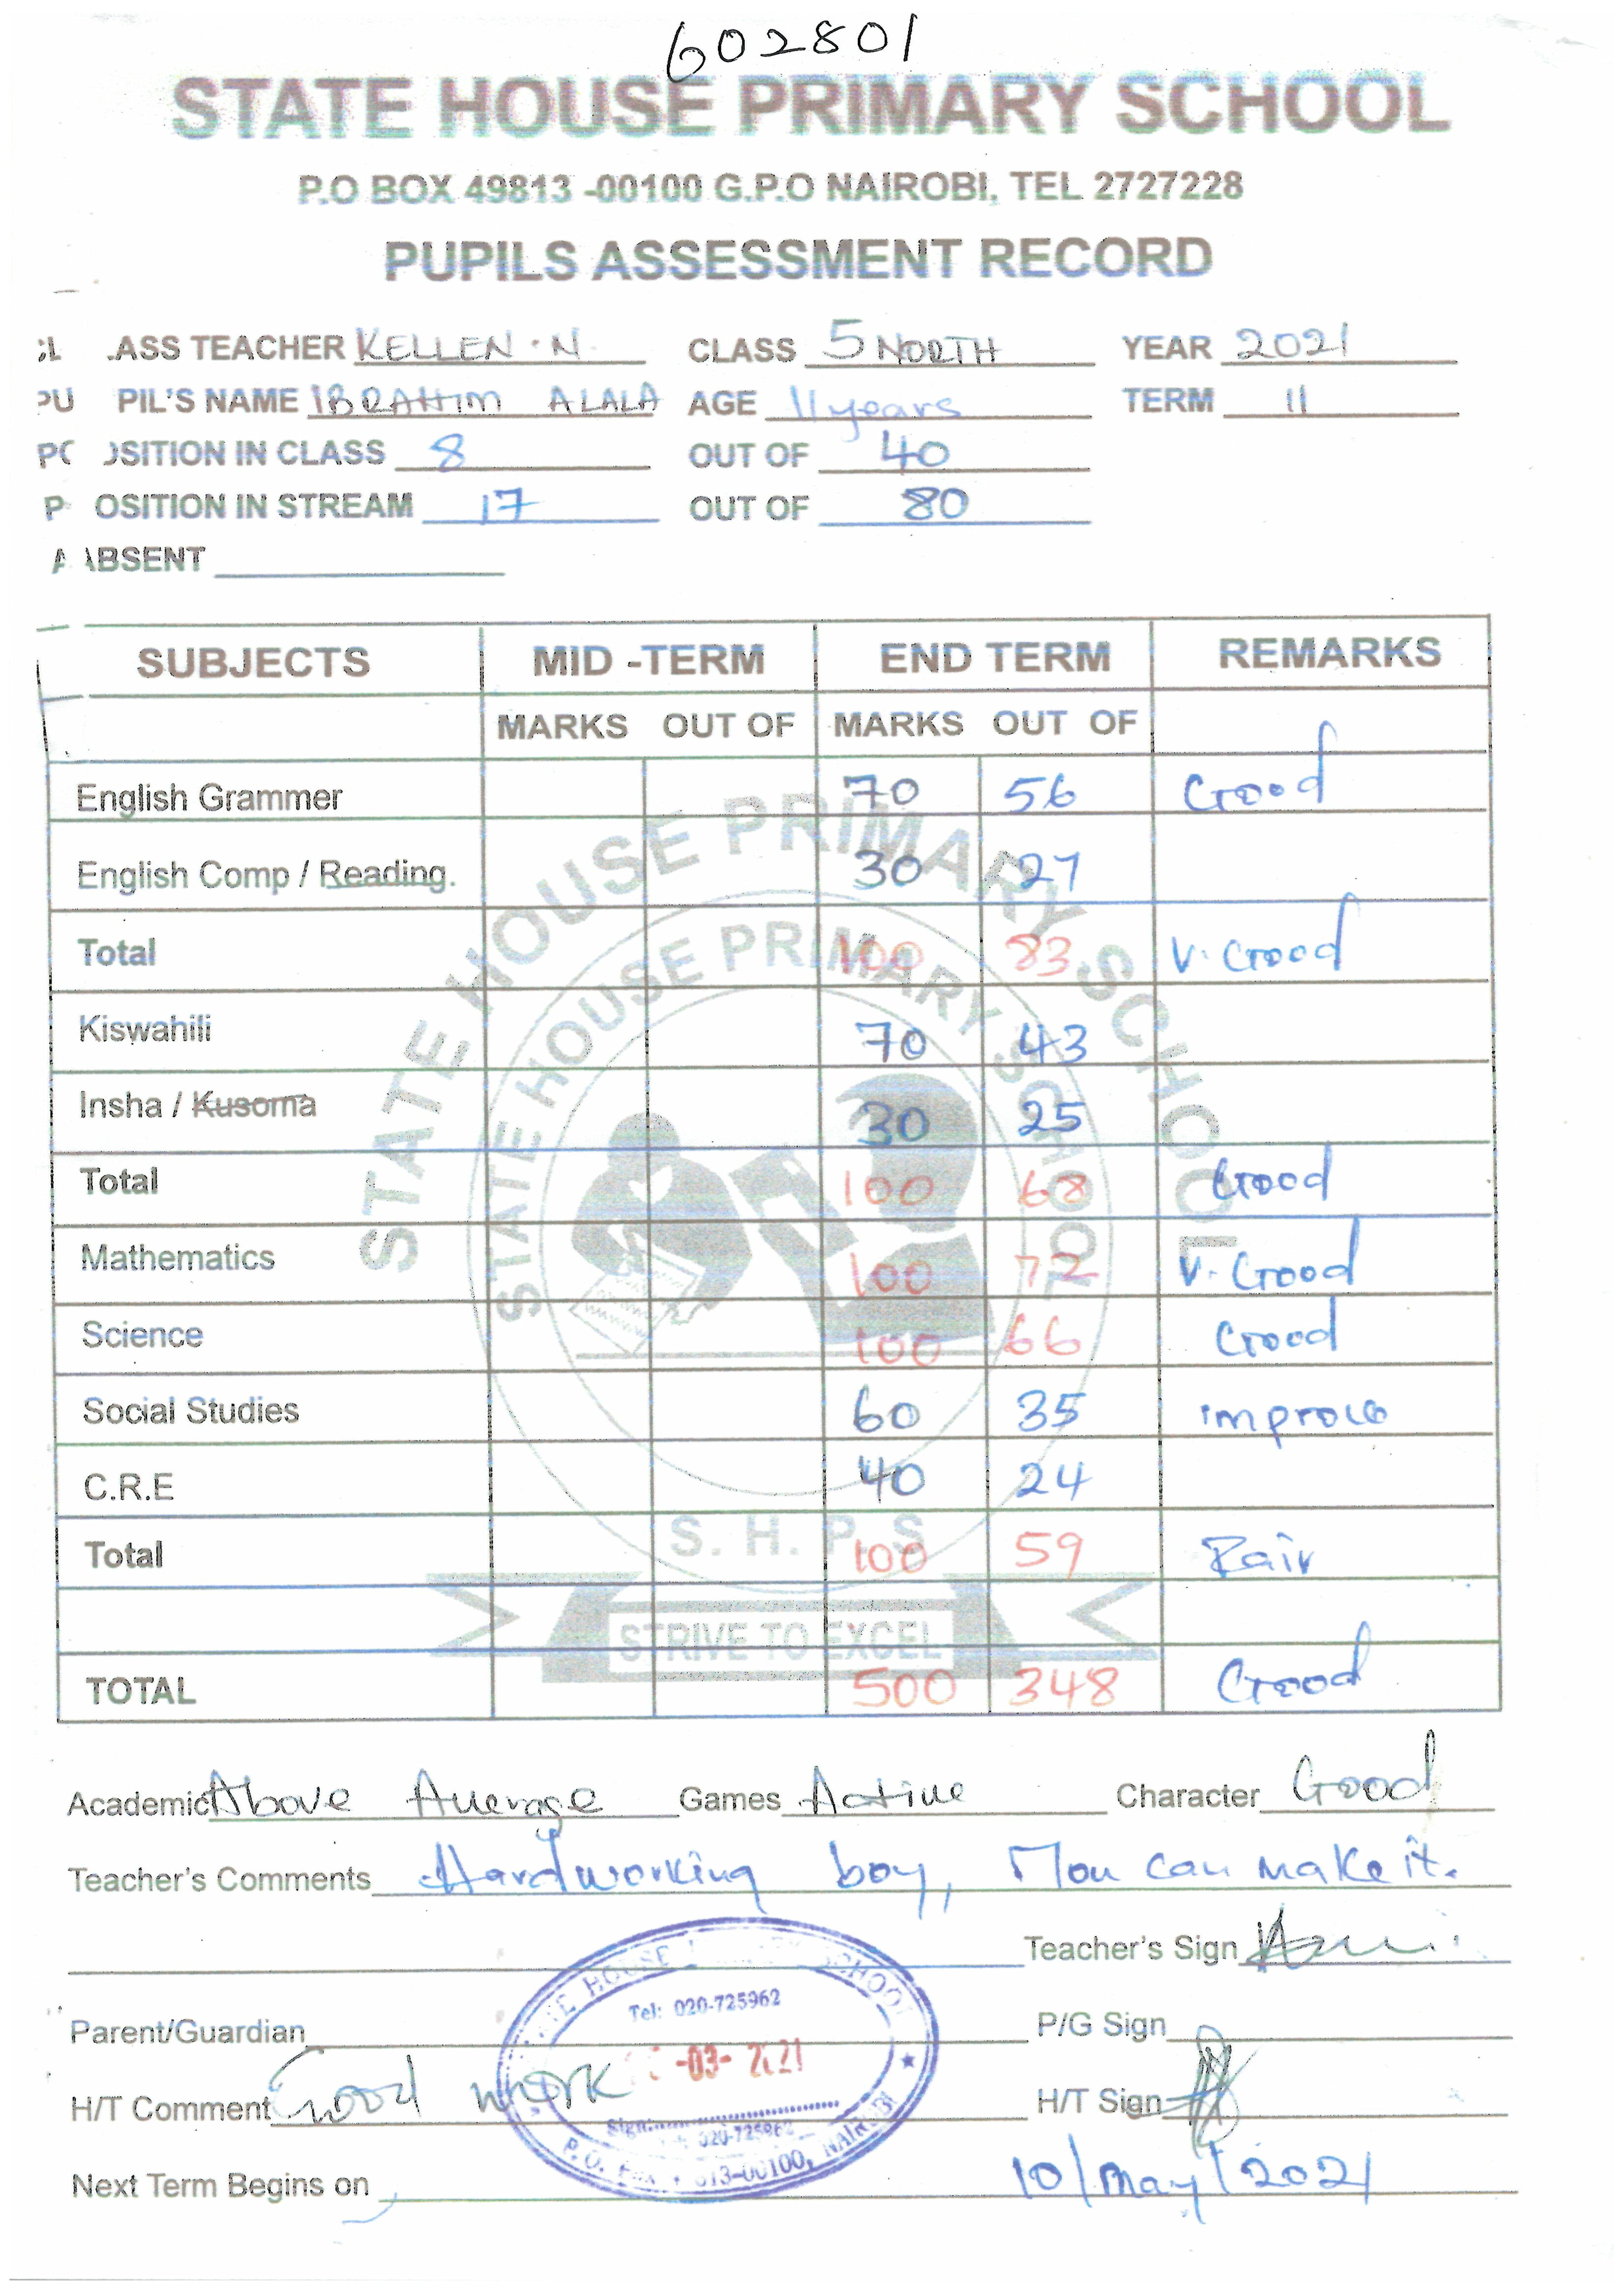 602801
STATE HOUSE PRIMARY SCHOOL
P.O BOX 49813 -00100 G.P.O NAIROBI, TEL 2727228
PUPILS ASSESSMENT RECORD
CLASS TEACHER KELLEN . N. CLASS 5 NORTH YEAR 2021
PUPIL'S NAME IBRAHIM ALALA AGE 11 years TERM 11
POSITION IN CLASS 8 OUT OF 40
POSITION IN STREAM 17 OUT OF 80
ABSENT
SUBJECTS MID -TERM END TERM REMARKS
MARKS OUT OF MARKS OUT OF
English Grammer 70 56 Good
English Comp / Reading. 30 27
Total 100 83 V. Good
Kiswahili 70 43
Insha / Kusoma 30 25
Total 100 68 Good
Mathematics 100 72 V. Good
Science 100 66 Good
Social Studies 60 35 improve
C.R.E 40 24
Total 100 59 Fair
TOTAL 500 348 Good
STATE HOUSE PRIMARY SCHOOL
STATE HOUSE PRIMARY SCHOOL
S. H. P. S
STRIVE TO EXCEL
Academic Above Average Games Active Character Good
Teacher's Comments Hardworking boy, You can make it.
Teacher's Sign
Parent/Guardian P/G Sign
H/T Comment Good work H/T Sign
Next Term Begins on 10/May/2021
HOUSE SCHOOL
Tel: 020-725962
-03- 2021
Sign:
020-725962
P.O. -00100, NAIROBI